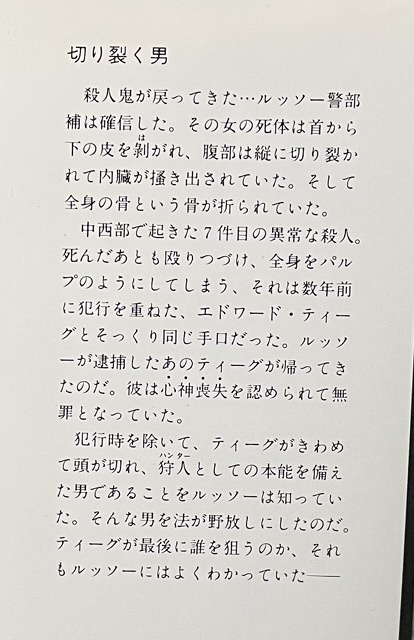 切り裂く男
殺人鬼が戻ってきた…ルッソー警部
補は確信した。その女の死体は首から
下の皮を剥がれ、腹部は縦に切り裂か
れて内臓が掻き出されていた。そして
全身の骨という骨が折られていた。
中西部で起きた7件目の異常な殺人。
死んだあとも殴りつづけ、全身をパル
プのようにしてしまう、それは数年前
に犯行を重ねた、エドワード・ティー
グとそっくり同じ手口だった。ルッソ
ーが逮捕したあのティーグが帰ってき
たのだ。彼は心神喪失を認められて無
罪となっていた。
犯行時を除いて、ティーグがきわめ
て頭が切れ、狩人としての本能を備え
た男であることをルッソーは知ってい
た。そんな男を法が野放しにしたのだ。
ティーグが最後に誰を狙うのか、それ
もルッソーにはよくわかっていた──